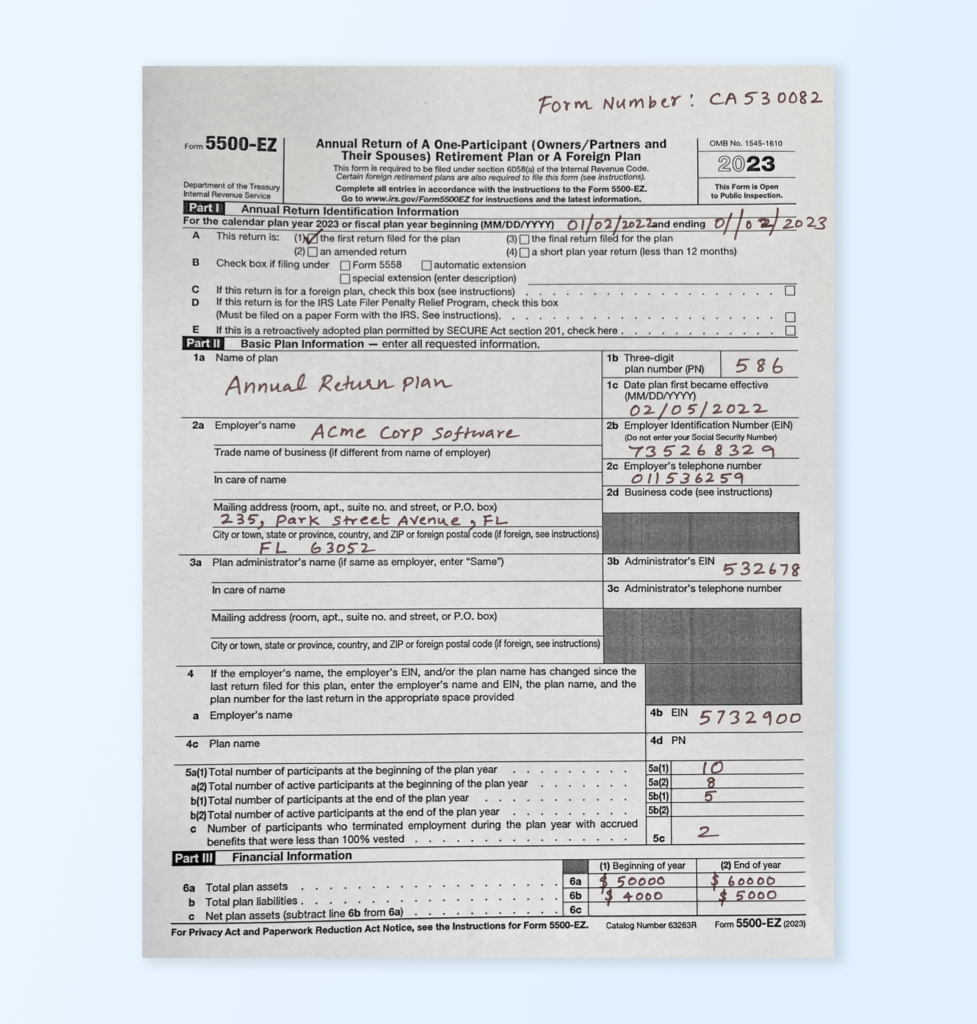 Form Number: CA530082
Form 5500-EZ
Department of the Treasury
Internal Revenue Service
Annual Return of A One-Participant (Owners/Partners and
Their Spouses) Retirement Plan or A Foreign Plan
This form is required to be filed under section 6058(a) of the Internal Revenue Code.
Certain foreign retirement plans are also required to file this form (see instructions).
Complete all entries in accordance with the instructions to the Form 5500-EZ.
Go to www.irs.gov/Form5500EZ for instructions and the latest information.
OMB No. 1545-1610
2023
This Form is Open
to Public Inspection.
Part I Annual Return Identification Information
For the calendar plan year 2023 or fiscal plan year beginning (MM/DD/YYYY) 01/02/2022 and ending 01/02/2023
A This return is: (1) the first return filed for the plan (3) the final return filed for the plan
(2) an amended return (4) a short plan year return (less than 12 months)
B Check box if filing under Form 5558 automatic extension
special extension (enter description)
C If this return is for a foreign plan, check this box (see instructions) . . . . . . . . . . . . . . . . . . . .
D If this return is for the IRS Late Filer Penalty Relief Program, check this box
(Must be filed on a paper Form with the IRS. See instructions). . . . . . . . . . . . . . . . . . . . . .
E If this is a retroactively adopted plan permitted by SECURE Act section 201, check here . . . . . . . . . . . .
Part II Basic Plan Information — enter all requested information.
1a Name of plan
Annual Return Plan
1b Three-digit
plan number (PN) 586
1c Date plan first became effective
(MM/DD/YYYY)
02/05/2022
2a Employer's name Acme Corp Software
2b Employer Identification Number (EIN)
(Do not enter your Social Security Number)
735268329
Trade name of business (if different from name of employer)
In care of name
2c Employer's telephone number
011536259
2d Business code (see instructions)
Mailing address (room, apt., suite no. and street, or P.O. box)
235, Park Street Avenue, FL
City or town, state or province, country, and ZIP or foreign postal code (if foreign, see instructions)
FL 63052
3a Plan administrator's name (if same as employer, enter "Same")
3b Administrator's EIN 532678
In care of name
3c Administrator's telephone number
Mailing address (room, apt., suite no. and street, or P.O. box)
City or town, state or province, country, and ZIP or foreign postal code (if foreign, see instructions)
4 If the employer's name, the employer's EIN, and/or the plan name has changed since the
last return filed for this plan, enter the employer's name and EIN, the plan name, and the
plan number for the last return in the appropriate space provided
a Employer's name
4b EIN 5732900
4c Plan name
4d PN
5a(1) Total number of participants at the beginning of the plan year . . . . . . . . 5a(1) 10
a(2) Total number of active participants at the beginning of the plan year . . . . . . . 5a(2) 8
b(1) Total number of participants at the end of the plan year . . . . . . . . . . 5b(1) 5
b(2) Total number of active participants at the end of the plan year . . . . . . . . 5b(2)
c Number of participants who terminated employment during the plan year with accrued
benefits that were less than 100% vested . . . . . . . . . . . . . . 5c 2
Part III Financial Information
(1) Beginning of year (2) End of year
6a Total plan assets . . . . . . . . . . . . . . . . 6a $ 50000 $ 60000
b Total plan liabilities . . . . . . . . . . . . . . . . 6b $ 4000 $ 5000
c Net plan assets (subtract line 6b from 6a) . . . . . . . . . 6c
For Privacy Act and Paperwork Reduction Act Notice, see the Instructions for Form 5500-EZ. Catalog Number 63263R Form 5500-EZ (2023)